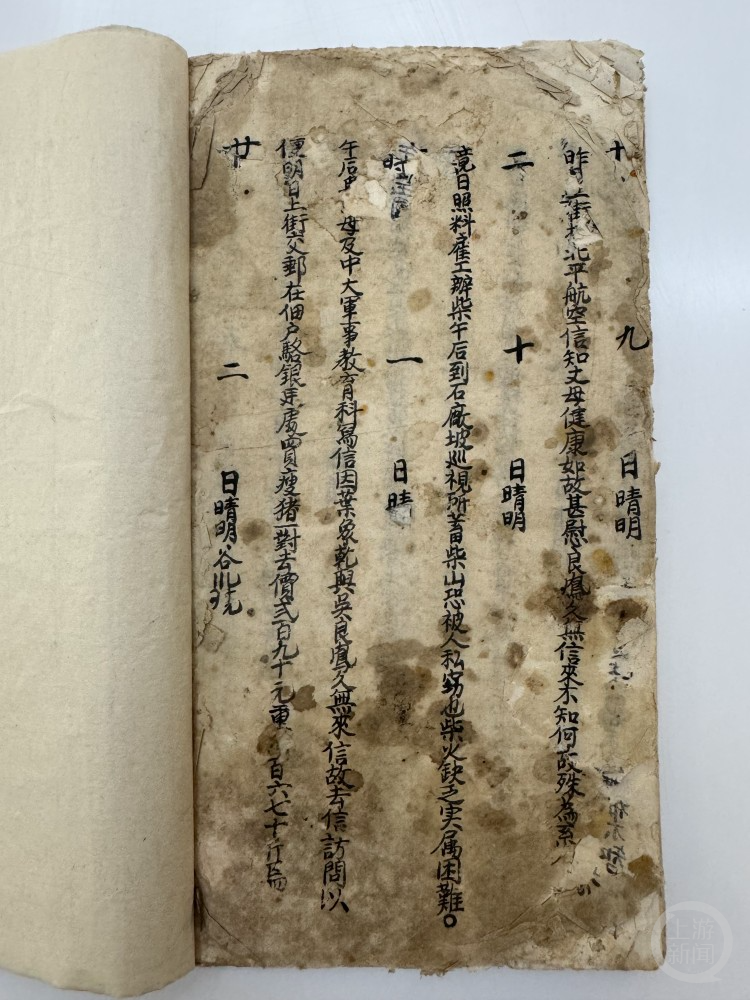 十 九 日晴明
昨日上街接北平航空信知丈母健康如故甚慰良鳶久無信來不知何故殊為系
二 十 日晴明
竟日照料雇工辦柴午后到石廠坡巡視所蓄柴山恐被人私窃也柴火缺乏実属困難。
一 日晴
午后 母及中大軍事教育科寫信因葉象乾與吳良鳶久無來信故去信訪問以
便明日上街交郵在佃戶駱銀 處買瘦猪一對去價弍百九十元重 百六七十斤
廿 二 日晴明谷
上游新闻